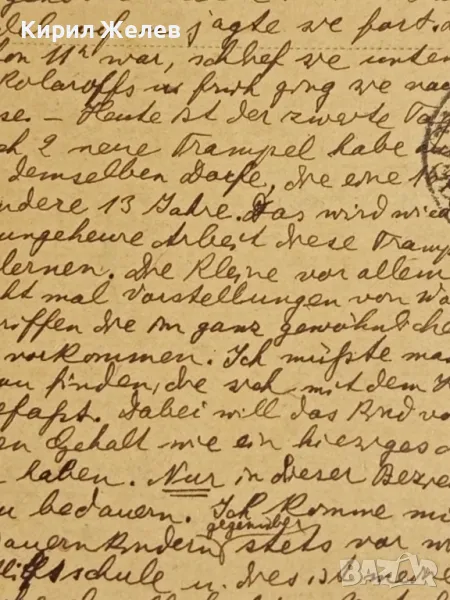 Кирил Желев
sagte sie fort.
on 11h war, schlief sie unten
Kolaroffs u. früh ging sie na
se. – Heute ist der zweite Ta
ch 2 neue Trampel habe au
demselben Dorfe, die eine 16
ndere 13 Jahre. Das wird wie
ungeheure Arbeit diese Tramp
lernen. Die Kleine vor allem
cht mal Vorstellungen von Wo
riffen die im ganz gewöhnliche
vorkommen. Ich müßte ma
au finden, die sich mit dem
efaßt. Dabei will das Kind vo
en Gehalt wie ein hiesiges
haben. Nur in dieser Bezie
u bedauern. Ich komme mi
gegenüber
auernkindern stets vor w
ilfsschule u. dies ist meine
BAZAR